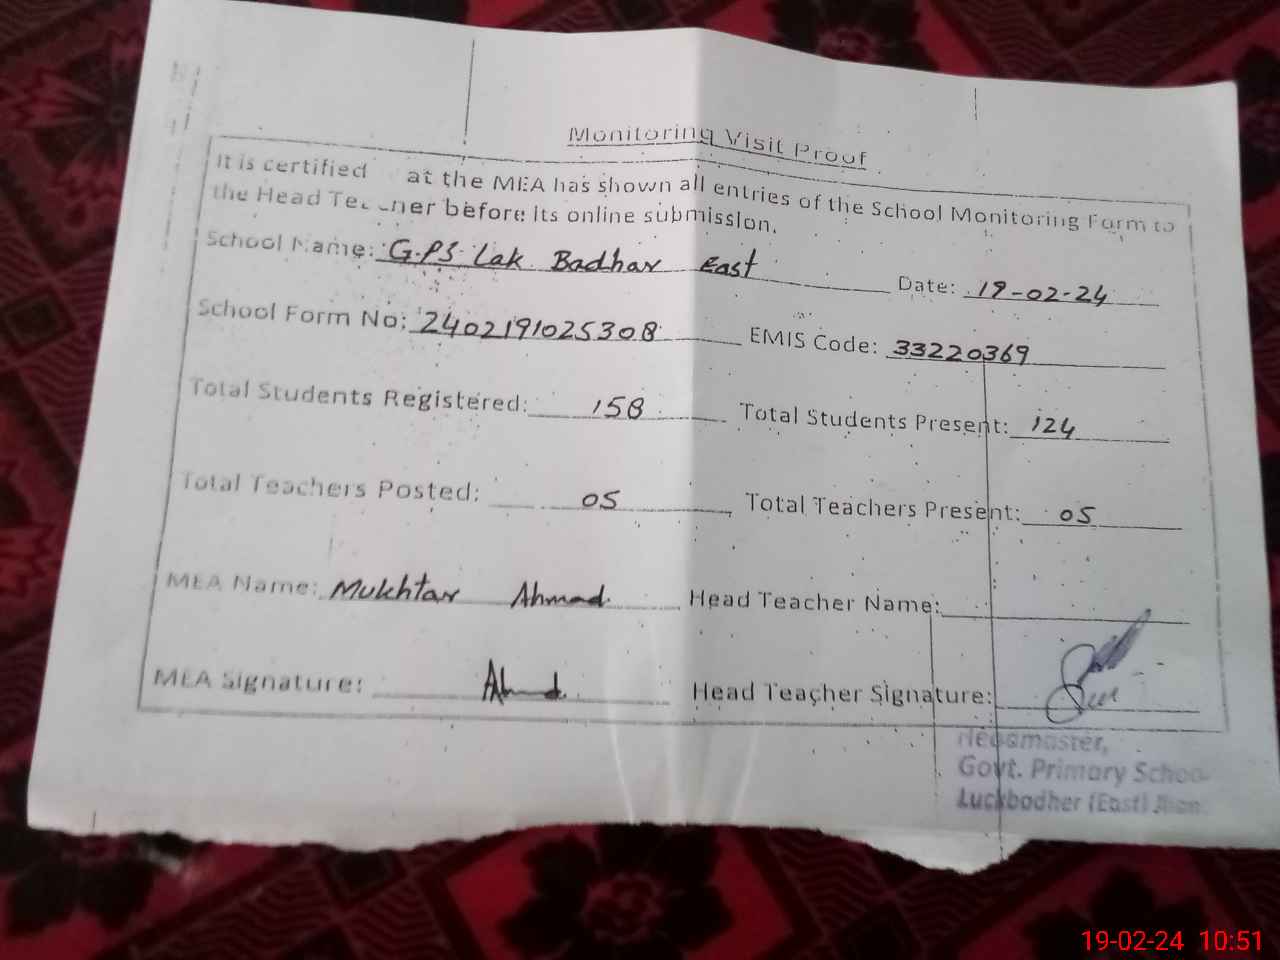 Monitoring Visit Proof
It is certified at the MEA has shown all entries of the School Monitoring Form to
the Head Teacher before its online submission.
School Name: G.P.S Lak Badhar East Date: 19-02-24
School Form No: 2402191025308 EMIS Code: 33220369
Total Students Registered: 158 Total Students Present: 124
Total Teachers Posted: 05 Total Teachers Present: 05
MEA Name: Mukhtar Ahmad Head Teacher Name:
MEA Signature: Ahmd Head Teacher Signature:
Headmaster,
Govt. Primary School
Luckbodher (East)
19-02-24 10:51